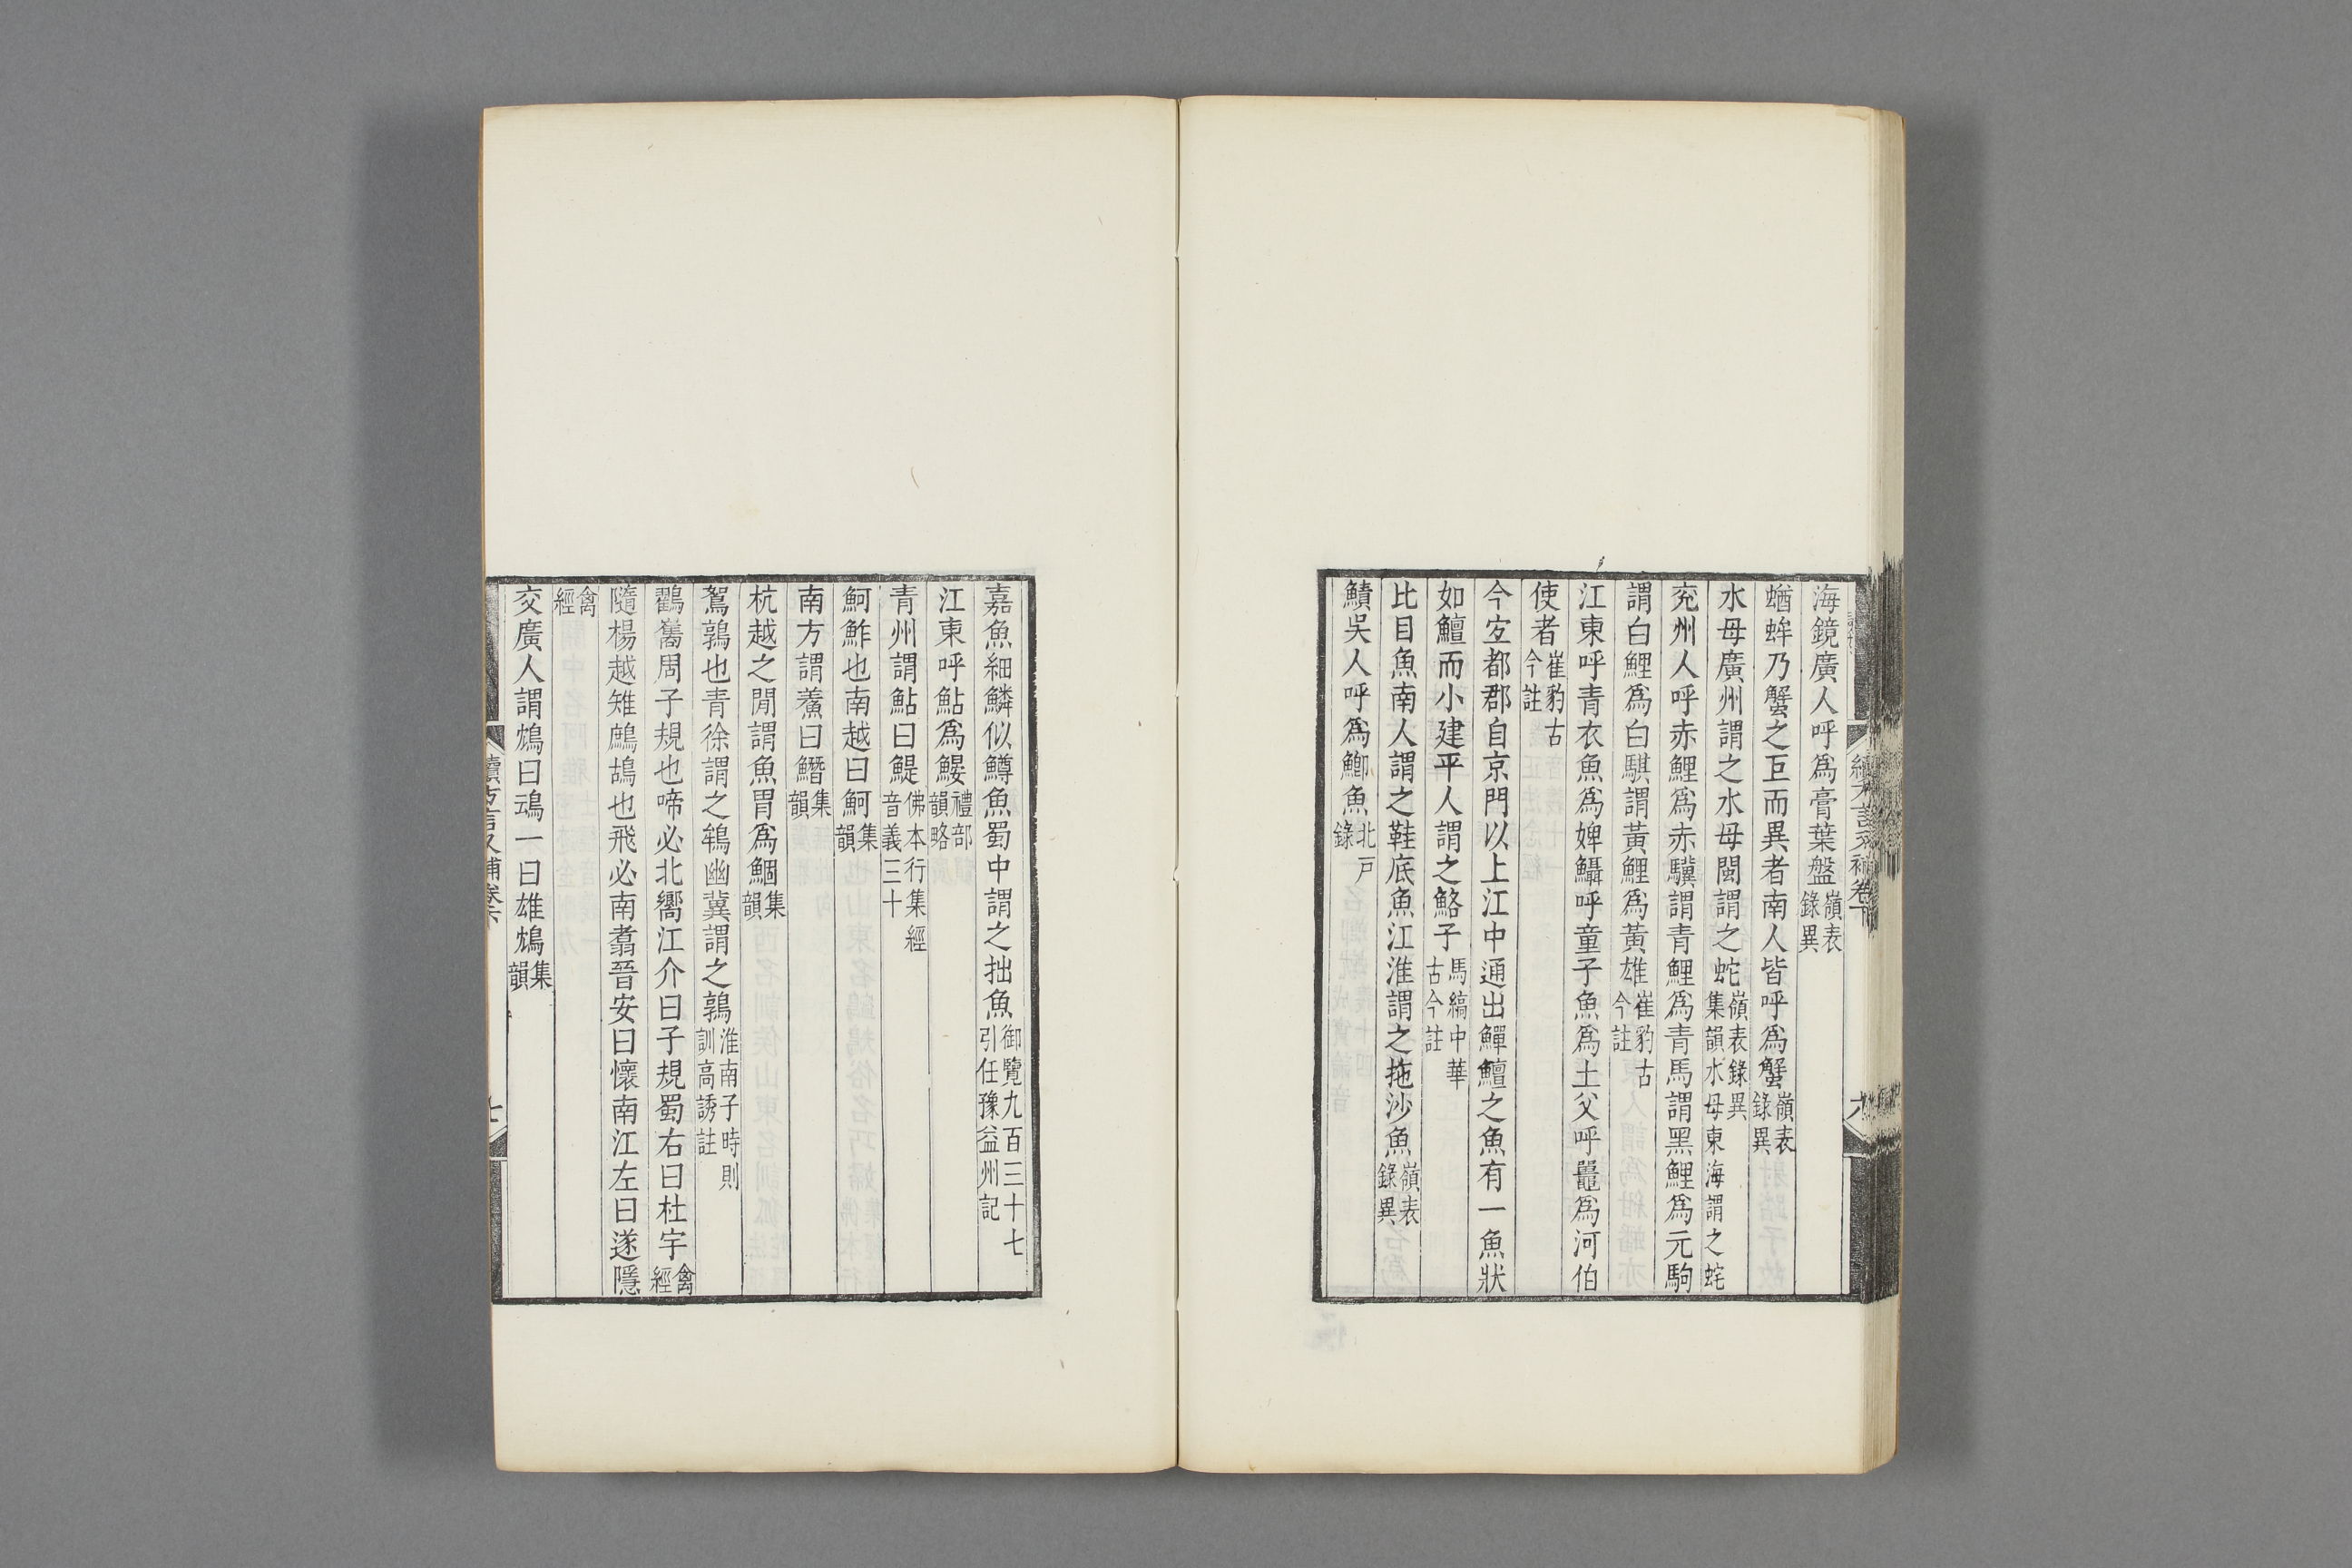 海鏡廣人呼爲膏葉盤嶺表錄異
蝤蛑乃蟹之巨而異者南人皆呼爲蟹嶺表錄異
水母廣州謂之水母閩謂之蛇嶺表錄異集韻水母東海謂之蛇
兖州人呼赤鯉爲赤驥謂青鯉爲青馬謂黑鯉爲元駒
謂白鯉爲白騏謂黃鯉爲黃雄崔豹古今註
江東呼青衣魚爲婢鱴呼童子魚爲土父呼鼉爲河伯
使者崔豹古今註
今宜都郡自京門以上江中通出鱓鱣之魚有一魚狀
如鱣而小建平人謂之鮥子馬縞中華古今註
比目魚南人謂之鞋底魚江淮謂之拖沙魚嶺表錄異
鰿吳人呼爲鯽魚北戸錄
嘉魚細鱗似鱒魚蜀中謂之拙魚御覽九百三十七引任豫益州記
江東呼鮎爲鰋禮部韻略
青州謂鮎曰鯷佛本行集經音義三十
魺鮓也南越曰魺集韻
南方謂鮺曰䲕集韻
杭越之閒謂魚胃爲鯝集韻
鴽鶉也青徐謂之䳺幽冀謂之鶉淮南子時則訓高誘註
鸛巂周子規也啼必北嚮江介曰子規蜀右曰杜宇禽經
隨楊越雉鷓鴣也飛必南翥晉安曰懷南江左曰遂隱
禽經
交廣人謂鴆曰䲰一曰雄鴆集韻
續方言又補卷下